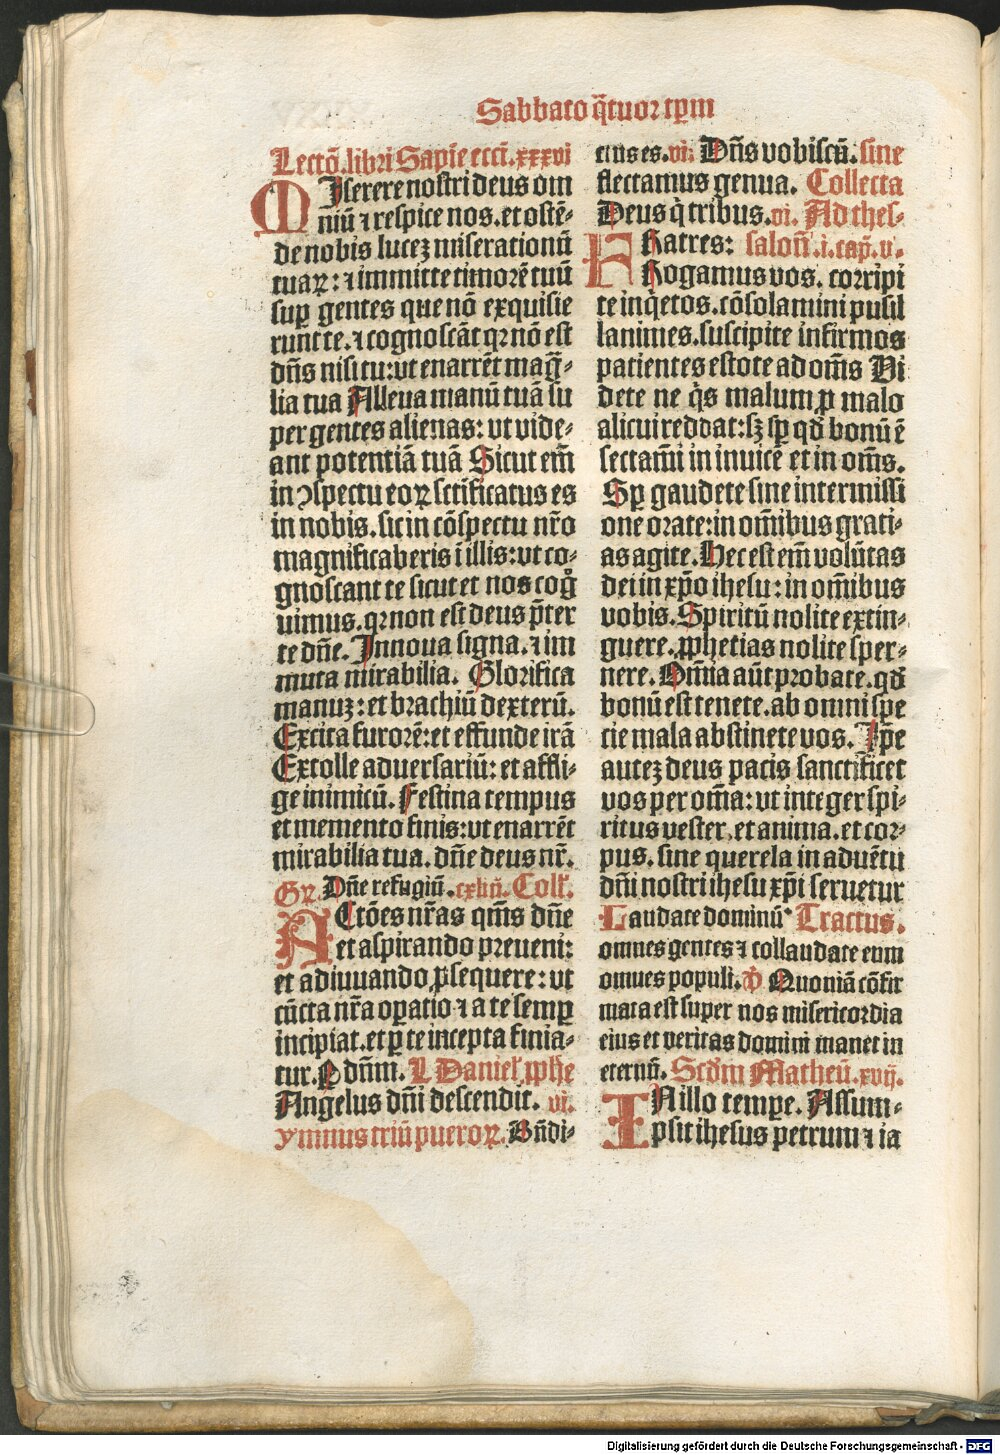 Sabbato q̃tuor tꝑm
Lectõ. libri Sapiẽ ecci̅. xxxvi
MIserere nostri deus om
niũ ⁊ respice nos. et ostẽ⸗
de nobis lucez miserationũ
tuaꝝ: ⁊ immitte timorẽ tuũ
suꝑ gentes que nõ exquisie
runt te. ⁊ cognoscãt qꝛ nõ est
dñs nisi tu: ut enarrẽt mag̃⸗
lia tua Alleua manũ tuã su
per gentes alienas: ut vide⸗
ant potentiã tuã Sicut em̃
in ꝯspectu eoꝝ sctificatus es
in nobis. sic in cõspectu nr̃o
magnificaberis ĩ illis: vt co⸗
gnoscant te sicut et nos cog̊
uimus. qꝛ non est deus p̃ter
te dñe. Innoua signa. ⁊ im
muta mirabilia. Glorifica
manuz: et brachiũ dexterũ.
Excita furorẽ: et effunde irã
Extolle aduersariũ: et affli⸗
ge inimicũ. Festina tempus
et memento finis: vt enarrẽt
mirabilia tua. dñe deus nr̃.
Gꝛ. Dñe refugiũ. cxliiij. Coll̃.
ACtões nr̃as qm̃s dñe
et aspirando preueni:
et adiuuando ꝓsequere: ut
cũcta nr̃a oꝑatio ⁊ a te semꝑ
incipiat. et ꝑ te incepta finia⸗
tur. P dñm. L Daniel̃. ꝓphe
Angelus dñi descendit. vi.
ymnus triũ pueroꝝ. Bñdi⸗
ctus es. vi. Dñs vobiscũ. sine
flectamus genua. Collecta
Deus q̇ tribus. vi. Ad thes⸗
FRatres: saloñ. i. cap̃. v.
Rogamus vos. corripi
te inq̇etos. cõsolamini pusil
lanimes. suscipite infirmos
patientes estote ad om̃s Vi
dete ne q̇s malum ꝓ malo
alicui reddat: sꝫ sꝑ qd̃ bonũ ẽ
sectami̅ in inuicẽ et in om̃s.
Sꝑ gaudete sine intermissi
one orate: in om̃ibus grati⸗
as agite. Hec est em̃ volũtas
dei in xp̃o ihesu: in om̃ibus
vobis. Spiritũ nolite extin⸗
guere. ꝓphetias nolite sper⸗
nere. Om̃ia aũt probate. qd̃
bonũ est tenete. ab omni spe
cie mala abstinete vos. Ip̃e
autez deus pacis sanctificet
vos per om̃a: ut integer spi⸗
ritus vester, et anima. et cor⸗
pus. sine querela in aduẽtu
dñi nostri ihesu xp̃i seruetur
Laudate dominũ Tractus.
omnes gentes ⁊ collaudate eum
omnes populi. ℣ Quoniã cõfir
mata est super nos misericordia
eius et veritas domini manet in
eternũ. Scd̃m Matheũ. xvij.
IN illo tempe. Assum⸗
psit ihesus petrum ⁊ ia
Digitalisierung gefördert durch die Deutsche Forschungsgemeinschaft - DFG